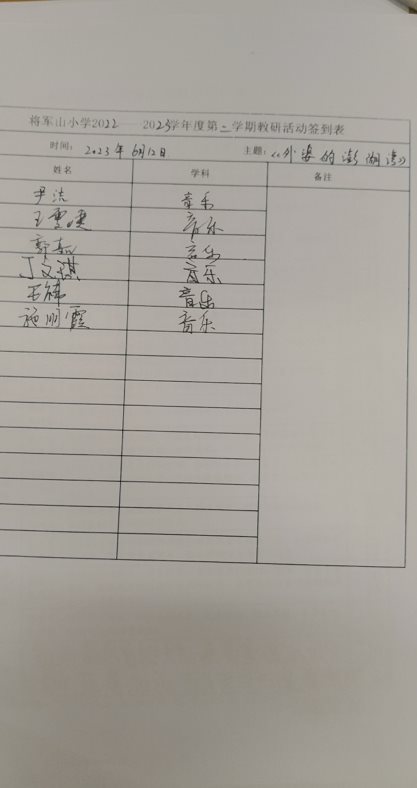 将军山小学2022——2023学年度第二学期教研活动签到表
时间: 2023年6月12日 主题: 《外婆的澎湖湾》
姓名 学科 备注
尹洁 音乐
王雪 音乐
郭 音乐
丁文琪 音乐
石 音乐
施明霞 音乐